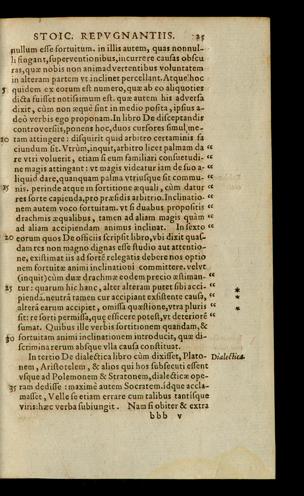 STOIC. REPVGNANTIIS. 25
nullum esse fortuitum. in illis autem, quas nonnul-
li fingant, superventionibus, incurrere causas obscu
ras, quæ nobis non animadvertentibus voluntatem
in alteram partem vt inclinet percellant. Atque hoc
5 quidem ex eorum est numero, quæ ab eo aliquoties
dicta fuisset notissimum est. quæ autem his adversa
dixit, cùm non æquè sint in medio posita, ipsius a-
deò verbis ego proponam. In libro De disceptandis
controversiis, ponens hoc, duos cursores simul me-
10 tam attingere: disquirit quid arbitro certaminis fa
ciundum sit. Vtrùm, inquit, arbitro licet palmam da
re vtri voluerit, etiam si eum familiari consuetudi-
ne magis attingant: vt magis videatur iam de suo a-
liquid dare, quanquam palma vtriusque sit commu-
15 nis. perinde atque in sortitione æquali, cùm datur
res sorte capienda, pro præsidis arbitrio. Inclinatio-
nem autem voco fortuitam. vt si duabus propositis
drachmis æqualibus, tamen ad aliam magis quàm
ad aliam accipiendam animus inclinat. In sexto
20 eorum quos De officiis scripsit libro, vbi dixit quas-
dam res non magno dignas esse studio aut attentio-
ne, existimat iis ad sortē relegatis debere nos optio
nem fortuitæ animi inclinationi committere. velut
(inquit) cùm duæ drachmæ eodem precio æstiman-
25 tur: quarum hic hanc, alter alteram putet sibi acci-
pienda. neutrā tamen cur accipiant existente causa,
alterā earum accipiet, omissa quæstione, vtra pluris
sit: re sorti permissa, quæ efficere potest, vt deteriorē
sumat. Quibus ille verbis sortitionem quandam, &
30 fortuitam animi inclinationem introducit, quæ di-
scrimina rerum absque vlla causa constituat.
In tertio De dialectica libro cùm dixisset, Plato- Dialectica.
nem, Aristotelem, & alios qui hos subsecuti essent
vsque ad Polemonem & Stratonem, dialecticæ ope-
35 ram dedisse: maximè autem Socratem. idque accla-
masset, Velle se etiam errare cum talibus tantisque
viris: hæc verba subiungit. Nam si obiter & extra
bbb v